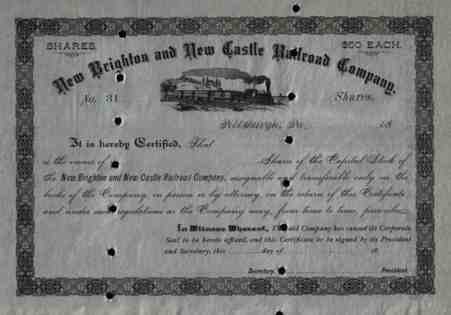 SHARES. $50 EACH.
New Brighton and New Castle Railroad Company.
No. 31 Shares.
Pittsburgh, Pa. 18
It is hereby Certified, That
is the owner of Share of the Capital Stock of
the New Brighton and New Castle Railroad Company, assignable and transferable only on the
books of the Company, in person or by attorney, on the return of this Certificate
and under such regulations as the Company may, from time to time, prescribe.
In Witness Whereof, The said Company has caused its Corporate
Seal to be hereto affixed, and this Certificate to be signed by its President
and Secretary, this day of 18
Secretary. President.